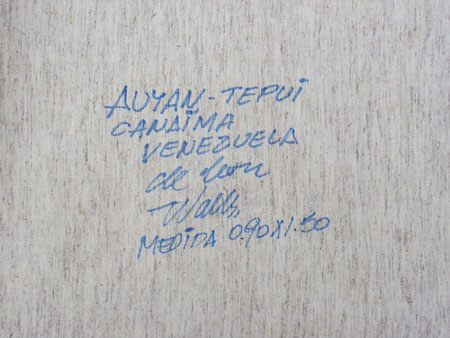 AUYAN-TEPUI
CANAIMA
VENEZUELA
de
MEDIDA 0.90X1.50